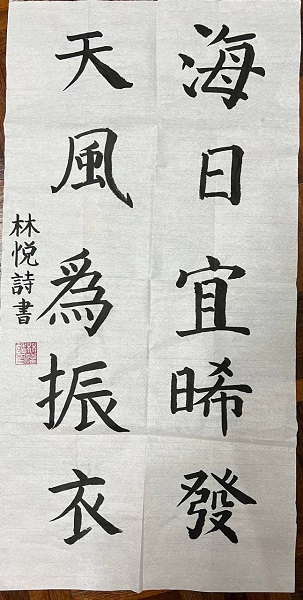 海日宜晞發
天風爲振衣
林悦詩書